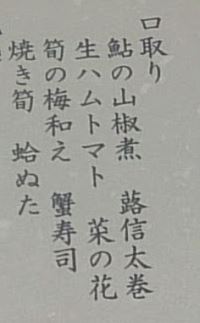 口取り
鮎の山椒煮　蕗信太巻
生ハムトマト　菜の花
筍の梅和え　蟹寿司
焼き筍　蛤ぬた